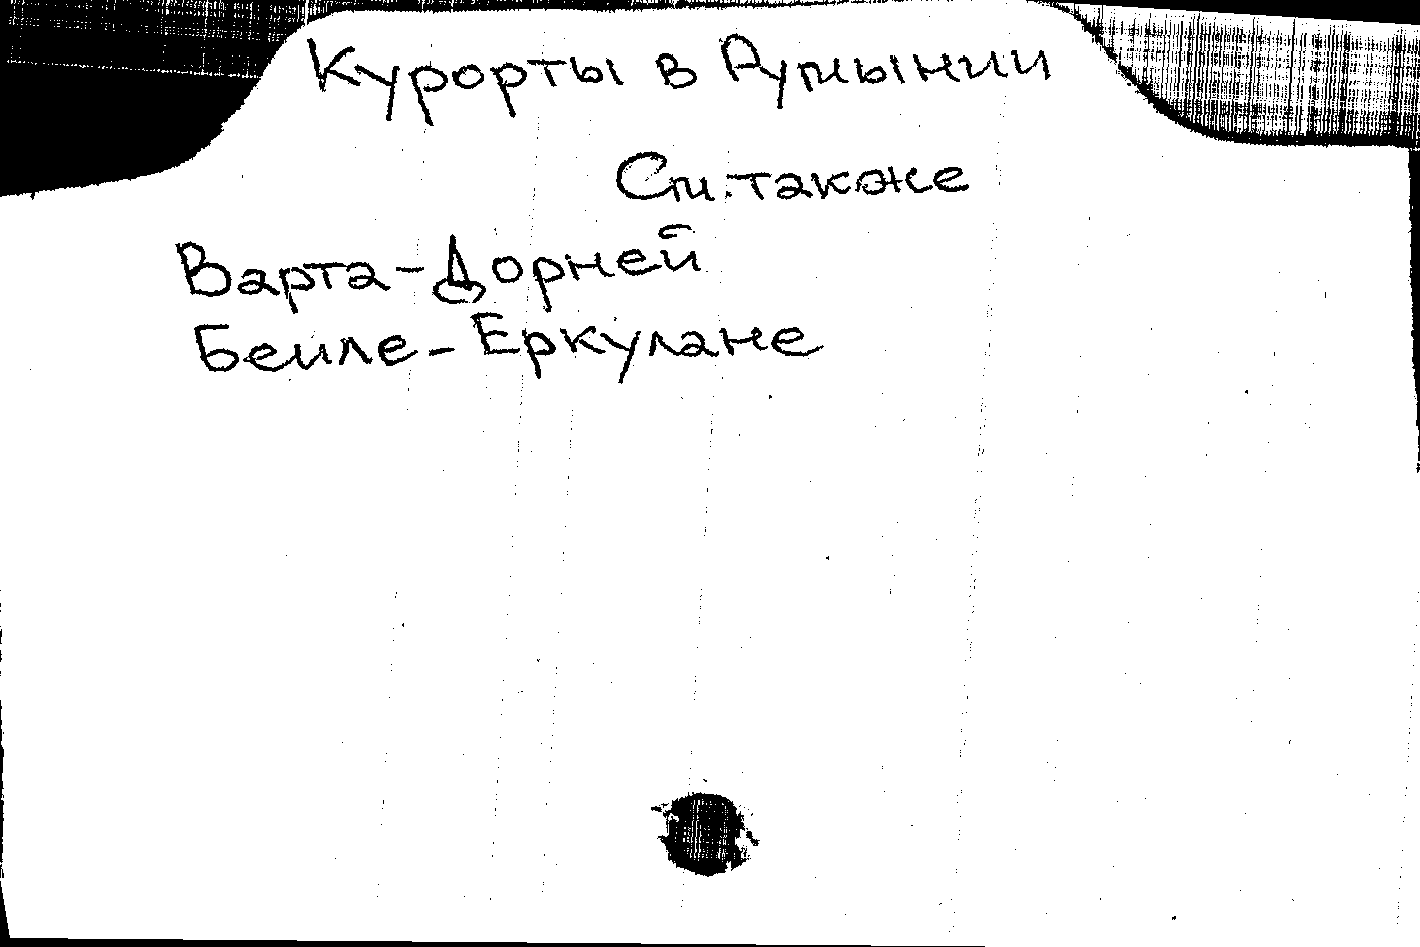 Курорты в Румынии
См. также
Варта-Дорней
Беиле-Еркулане